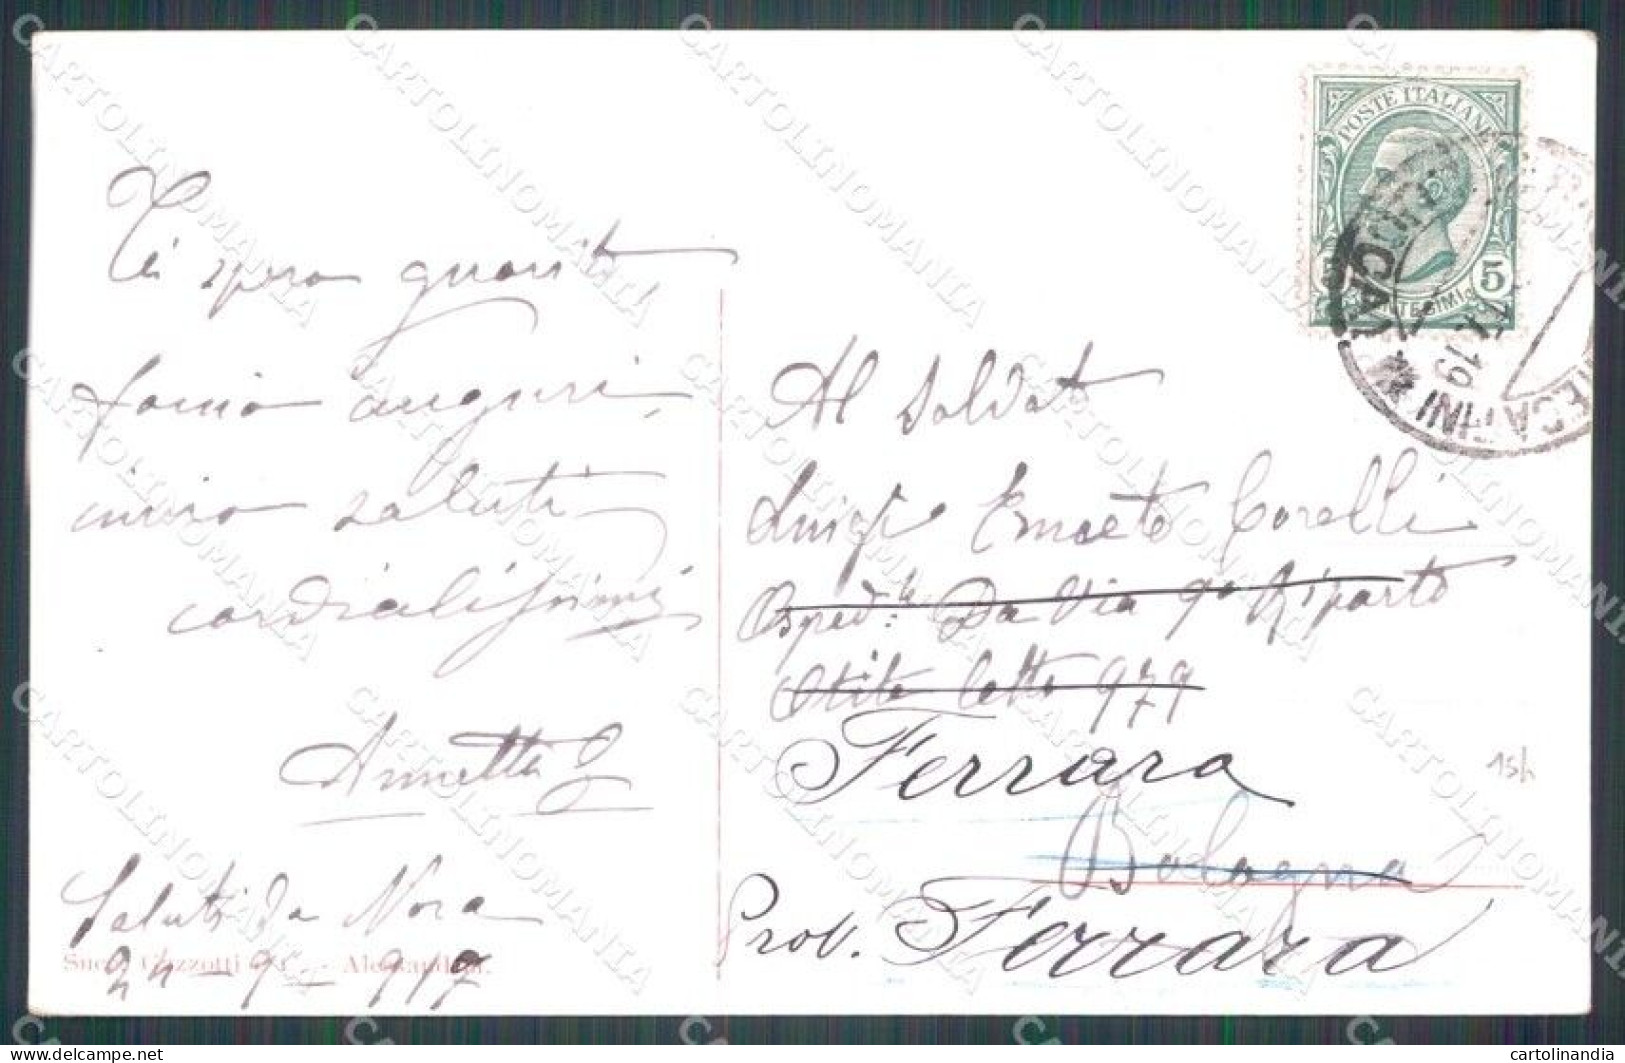 Ti spero guarito,
saluti
cordialissimi
Annetta G
Saluti da Nora
24-9-917
Succ. Guzzotti
POSTE ITALIANE
5
Al Soldato
Luigi Ernesto Corelli
Osped.le Da Via 9° Riparto
Otite letto 979
Ferrara
Bologna
Prov. Ferrara
15h
CARTOLINOMANIA
delcampe.net
cartolinandia